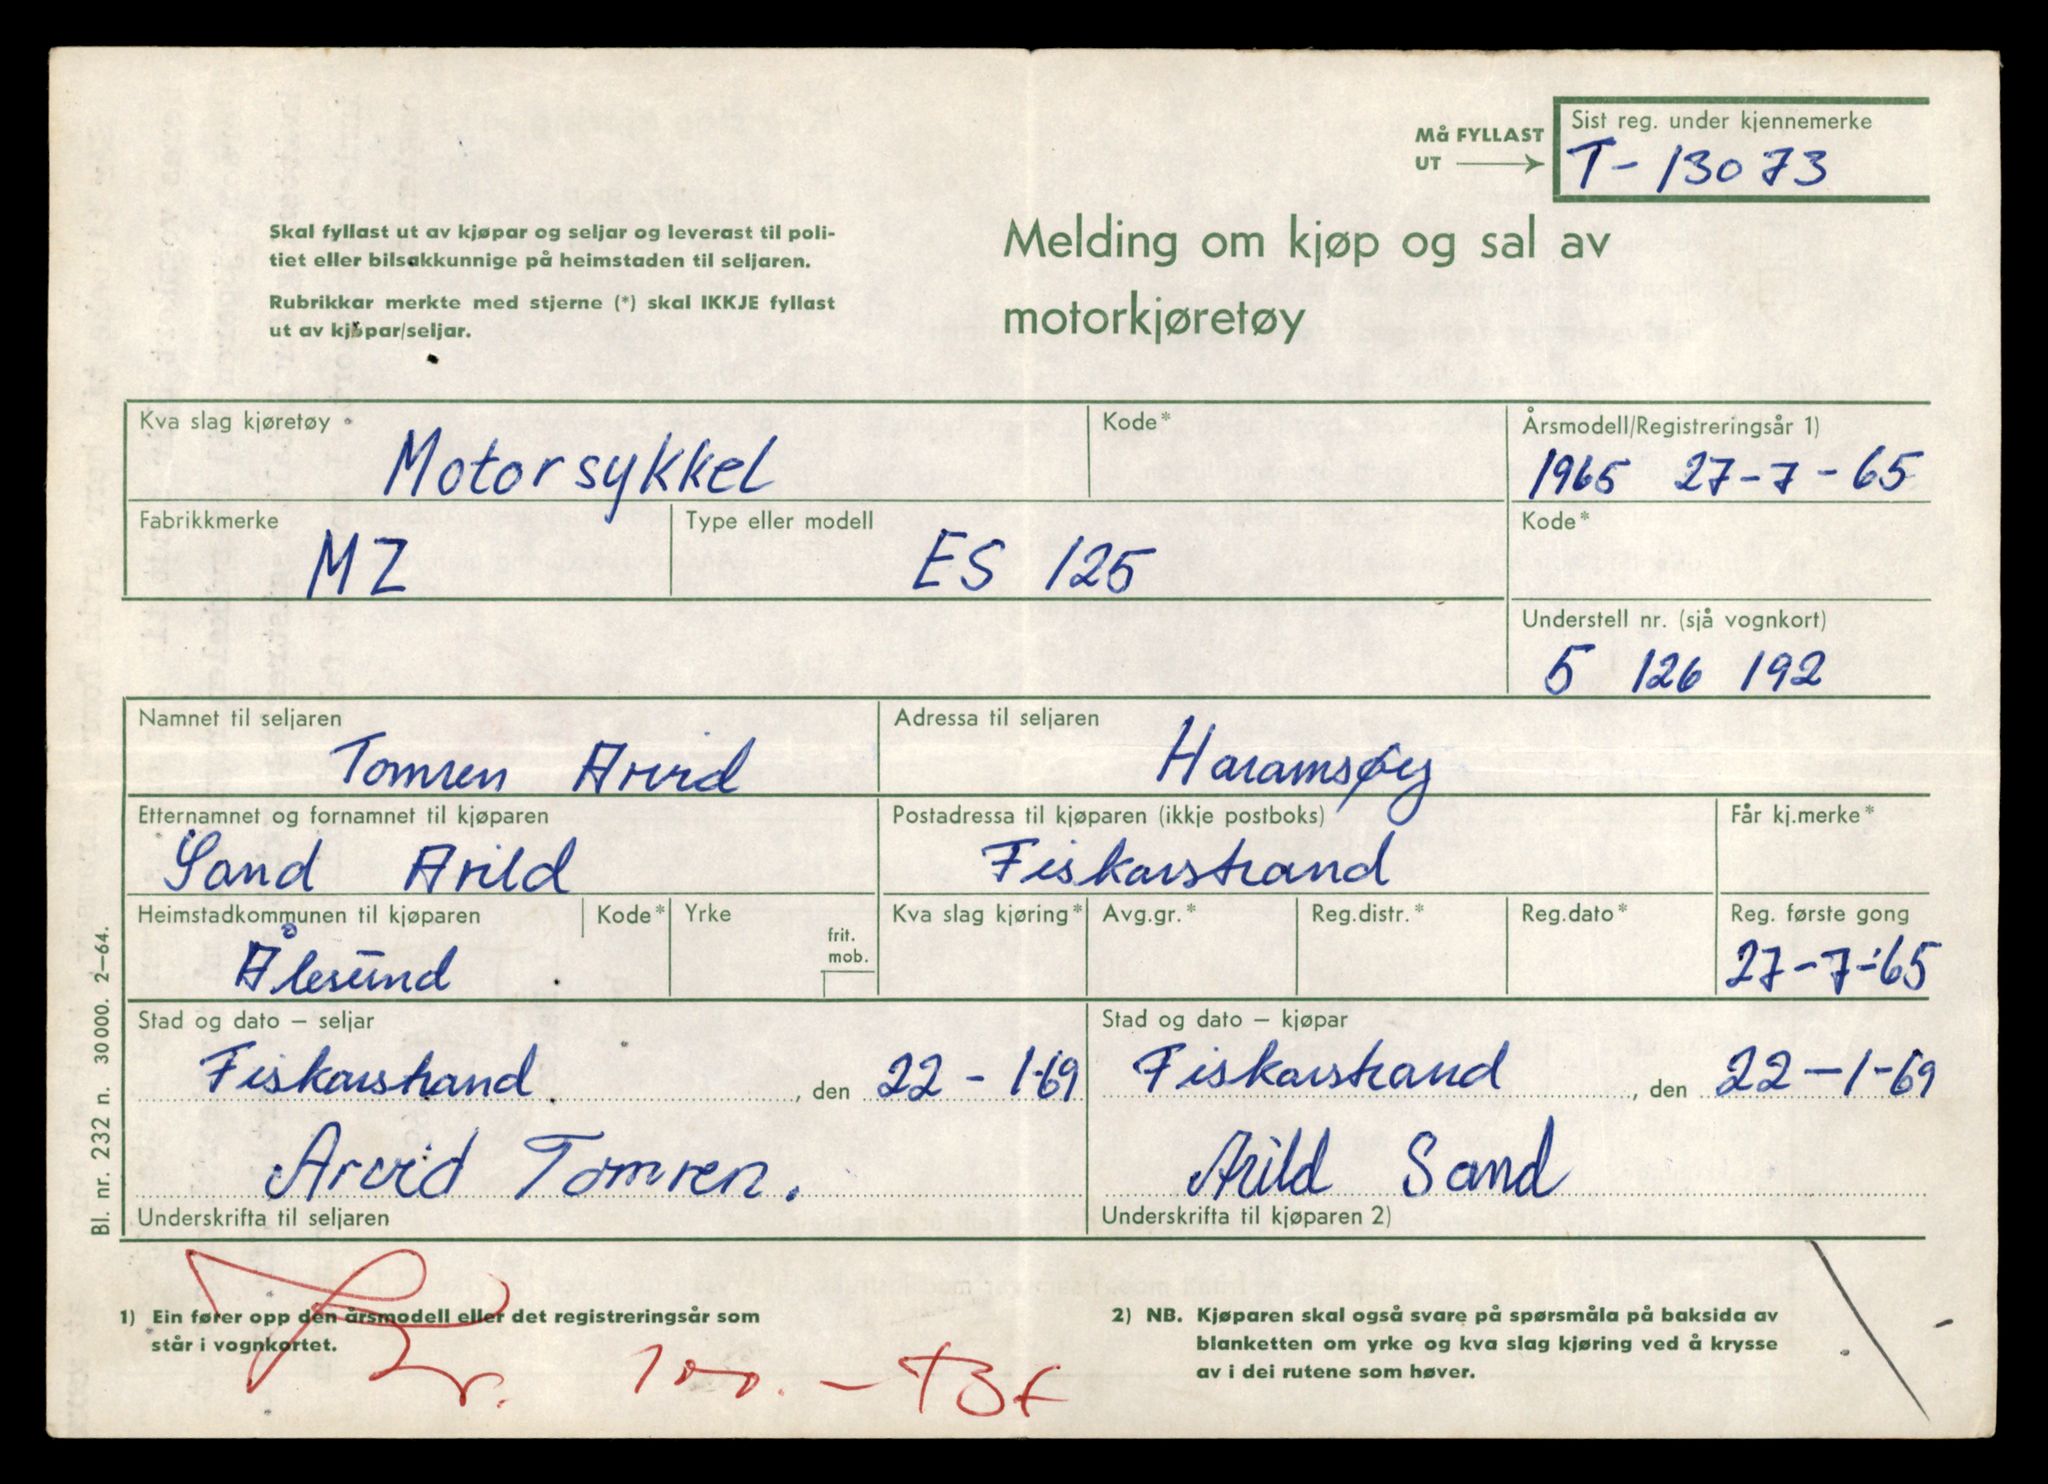 Må FYLLAST
UT
Sist reg. under kjennemerke
T-13073
Skal fyllast ut av kjøpar og seljar og leverast til poli-
tiet eller bilsakkunnige på heimstaden til seljaren.
Rubrikkar merkte med stjerne (*) skal IKKJE fyllast
ut av kjøpar/seljar.
Melding om kjøp og sal av
motorkjøretøy
Kva slag kjøretøy
Motorsykkel
Kode*
Årsmodell/Registreringsår 1)
1965 27-7-65
Fabrikkmerke
MZ
Type eller modell
ES 125
Kode*
Understell nr. (sjå vognkort)
5 126 192
Namnet til seljaren
Tomren Arvid
Adressa til seljaren
Haramsøy
Etternamnet og fornamnet til kjøparen
Sand Arild
Postadressa til kjøparen (ikkje postboks)
Fiskarstrand
Får kj.merke*
Heimstadkommunen til kjøparen
Ålesund
Kode*
Yrke
frit.
mob.
Kva slag kjøring*
Avg.gr.*
Reg.distr.*
Reg.dato*
Reg. første gong
27-7-65
Stad og dato – seljar
Fiskarstrand, den 22-1-69
Stad og dato – kjøpar
Fiskarstrand, den 22-1-69
Arvid Tomren.
Underskrifta til seljaren
Arild Sand
Underskrifta til kjøparen 2)
Bl. nr. 232 n. 30000. 2–64.
1) Ein fører opp den årsmodell eller det registreringsår som
står i vognkortet.
2) NB. Kjøparen skal også svare på spørsmåla på baksida av
blanketten om yrke og kva slag kjøring ved å krysse
av i dei rutene som høver.
kr. 100.-